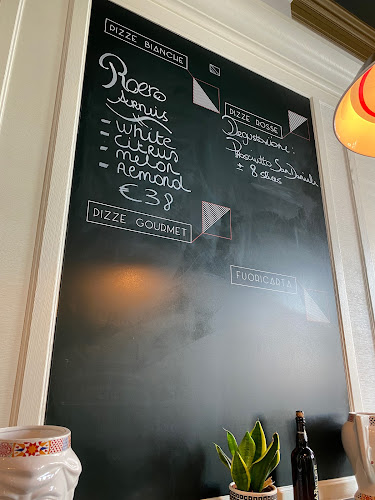 PIZZE BIANCHE
Roero
Arneis
- White
- Citrus
- Melon
- Almond
€38
PIZZE GOURMET
PIZZE ROSSE
Degustazione:
Prosciutto San Daniele
± 8 slices
FUORICARTA